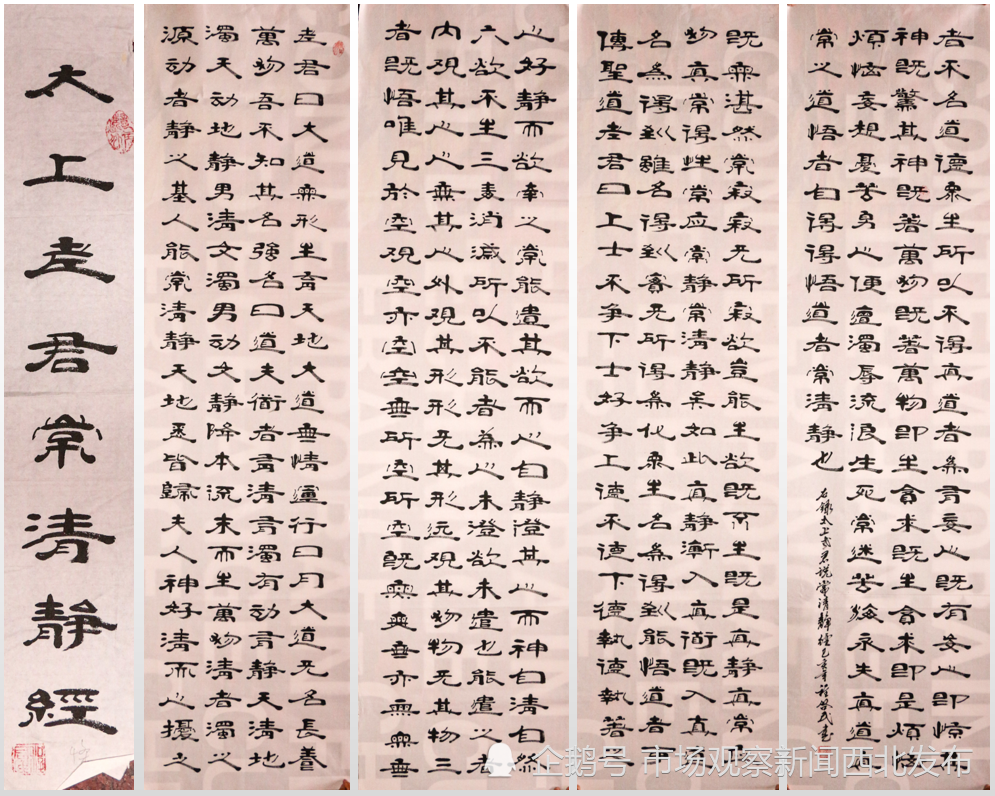 太上老君常清静經
老君曰大道無形生育天地大道無情運行日月大道无名長養
萬物吾不知其名強名曰道夫衜者有清有濁有动有静天清地
濁天动地静男清女濁男动女静降本流末而生萬物清者濁之
源动者静之基人能常清静天地悉皆歸夫人神好清而心擾之
心好静而欲牽之常能遣其欲而心自静澄其心而神自清自然
六欲不生三毒消滅所以不能者為心未澄欲未遣也能遣之者
内观其心心無其心外观其形形无其形远观其物物无其物三
者既悟唯見於空观空亦空空無所空所空既無無無亦無無無
既無湛然常寂寂无所寂欲豈能生欲既不生既是真静真常应
物真常得性常应常静常清静矣如此真静漸入真衜既入真道
名為得道雖名得道實无所得為化衆生名為得道能悟道者可
傳聖道老君曰上士不争下士好争上德不德下德執德執著之
者不名道德衆生所以不得真道者為有妄心既有妄心即惊其
神既驚其神既著萬物既著萬物即生貪求既生貪求即是煩恼
煩恼妄想憂苦身心便遭濁辱流浪生死常迷苦海永失真道真
常之道悟者自得得悟道者常清静也
右錄太上老君說常清靜經
企鹅号 市场观察新闻西北发布